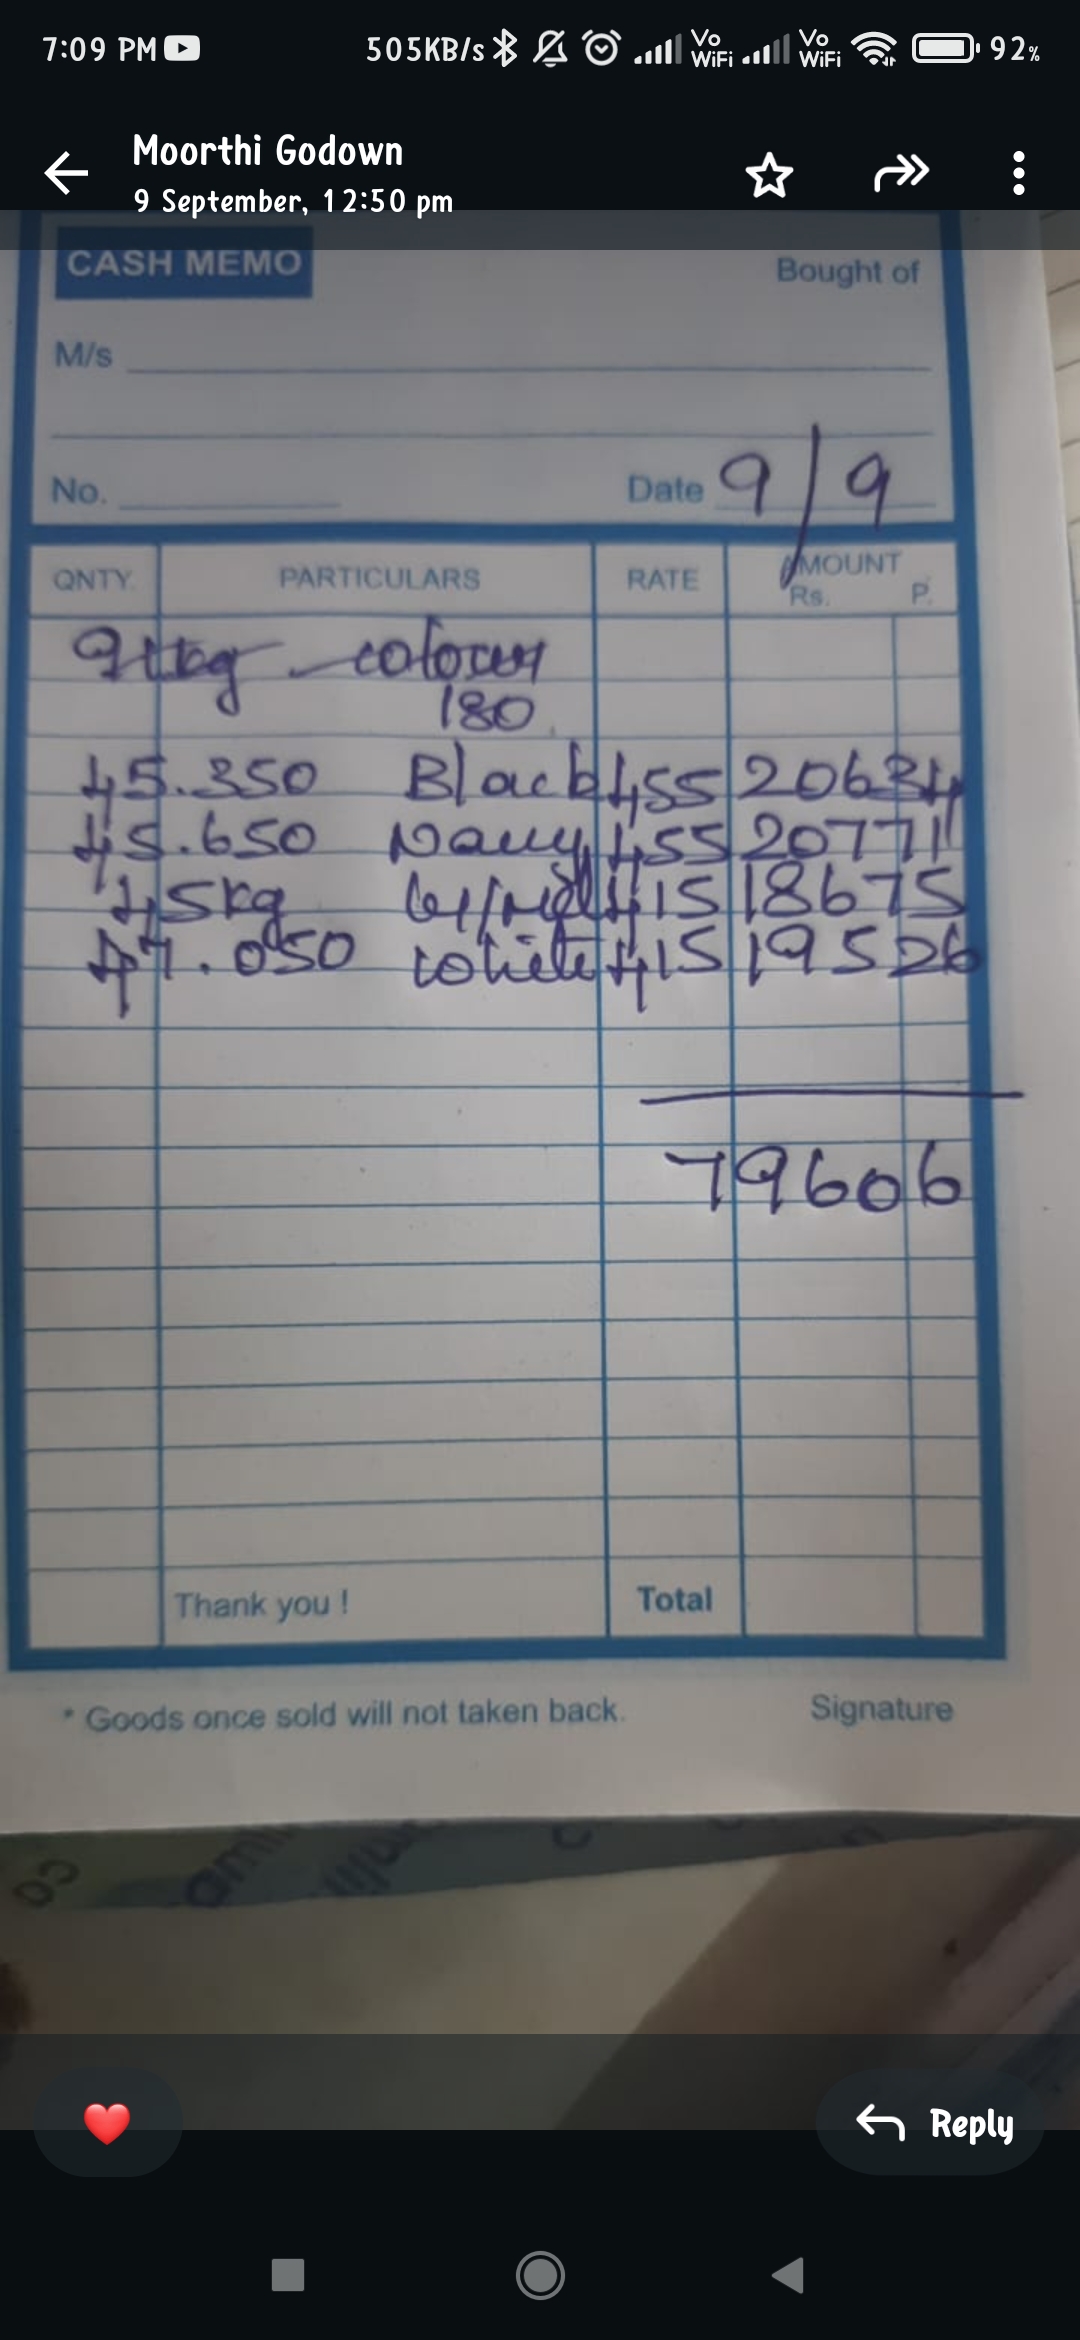 7:09 PM 505KB/s Vo WiFi Vo WiFi 92%
Moorthi Godown
9 September, 12:50 pm
CASH MEMO Bought of
M/s
No. Date 9/9
QNTY. PARTICULARS RATE AMOUNT
Rs. P.
colour
180
45.350 Black 455 20634
45.650 Navy 455 20771
45kg 415 18675
47.050 white 415 19526
79606
Thank you ! Total
* Goods once sold will not taken back. Signature
Reply